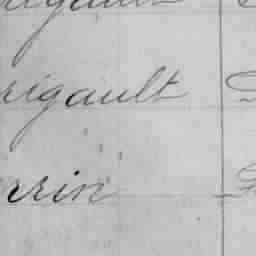 rigault
rigault
erin